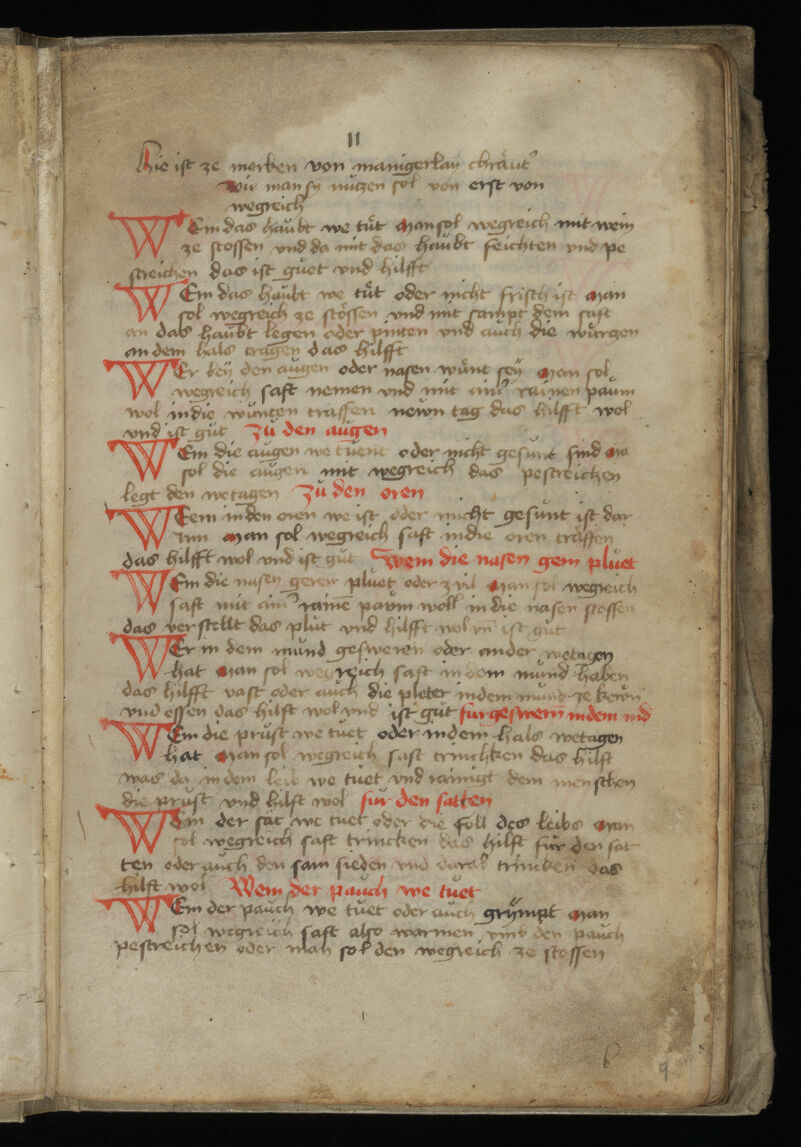 11
Hie ist ze merken von manigerlay chräut
wie man sy nützen sol von erst von
wegreich
Wem das haubt we tüt Man sol wegreich mit wein
ze stossen vnd da mit das haubt feichten vnd pe
streichen das ist guet vnd hilfft
Wem das haubt we tüt oder nicht frisch ist Man
sol wegreich ze stössen vnd mit sampt dem saft
an das haubt legen oder pinten vnd auch die würtzen
an dem hals tragen das hilfft
Wer bey den augen oder nasen wünt sey Man sol
wegreich saft nemen vnd mit aim rainen paum
wol in die wunten trässen newn tag das hilfft wol
vnd ist güt Zü den augen
Wem die augen we tuent oder nicht gesunt sind Ma
sol die augen mit wegreich das pestreichen
legt den wetagen Zü den oren
Wem in den oren we ist oder nicht gesünt ist dar
Inn Man sol wegreich saft in die oren träffen
das hilfft wol vnd ist güt Wem die nasen gern plüet
Wem die nasen geren plüet oder zvil Man sol wegreich
saft mit aim raine paum woll in die nasen stossen
das verstellt das plüt vnd hilfft wol vn ist güt
Wer in dem mund gesweren oder ander wetagen
hat Man sol wegreich saft in dem mund haben
das hilfft vast oder auch die pleter in dem mund ze kewn
vnd essen das hilft wol vnd ist güt für geswern in dem md
Wem die prüst we tuet oder in dem hals wetagen
hat Man sol wegreich saft trinchken das hilft
was da in dem leib we tuet vnd rainigt dem menschen
die prüst vnd hilft wol für den satten
Wem der sat we tuet oder die föll des leibs Man
sol wegreich saft trincken das hilft für den sat
ten oder auch den sam sieden vnd darab trincken das
hilft wol Wem der pauch we tuet
Wem der pauch we tuet oder auch grympt Man
sol wegreich saft also warmen vmb den pauch
pestreichen oder man sol den wegreich ze stossen
6
9